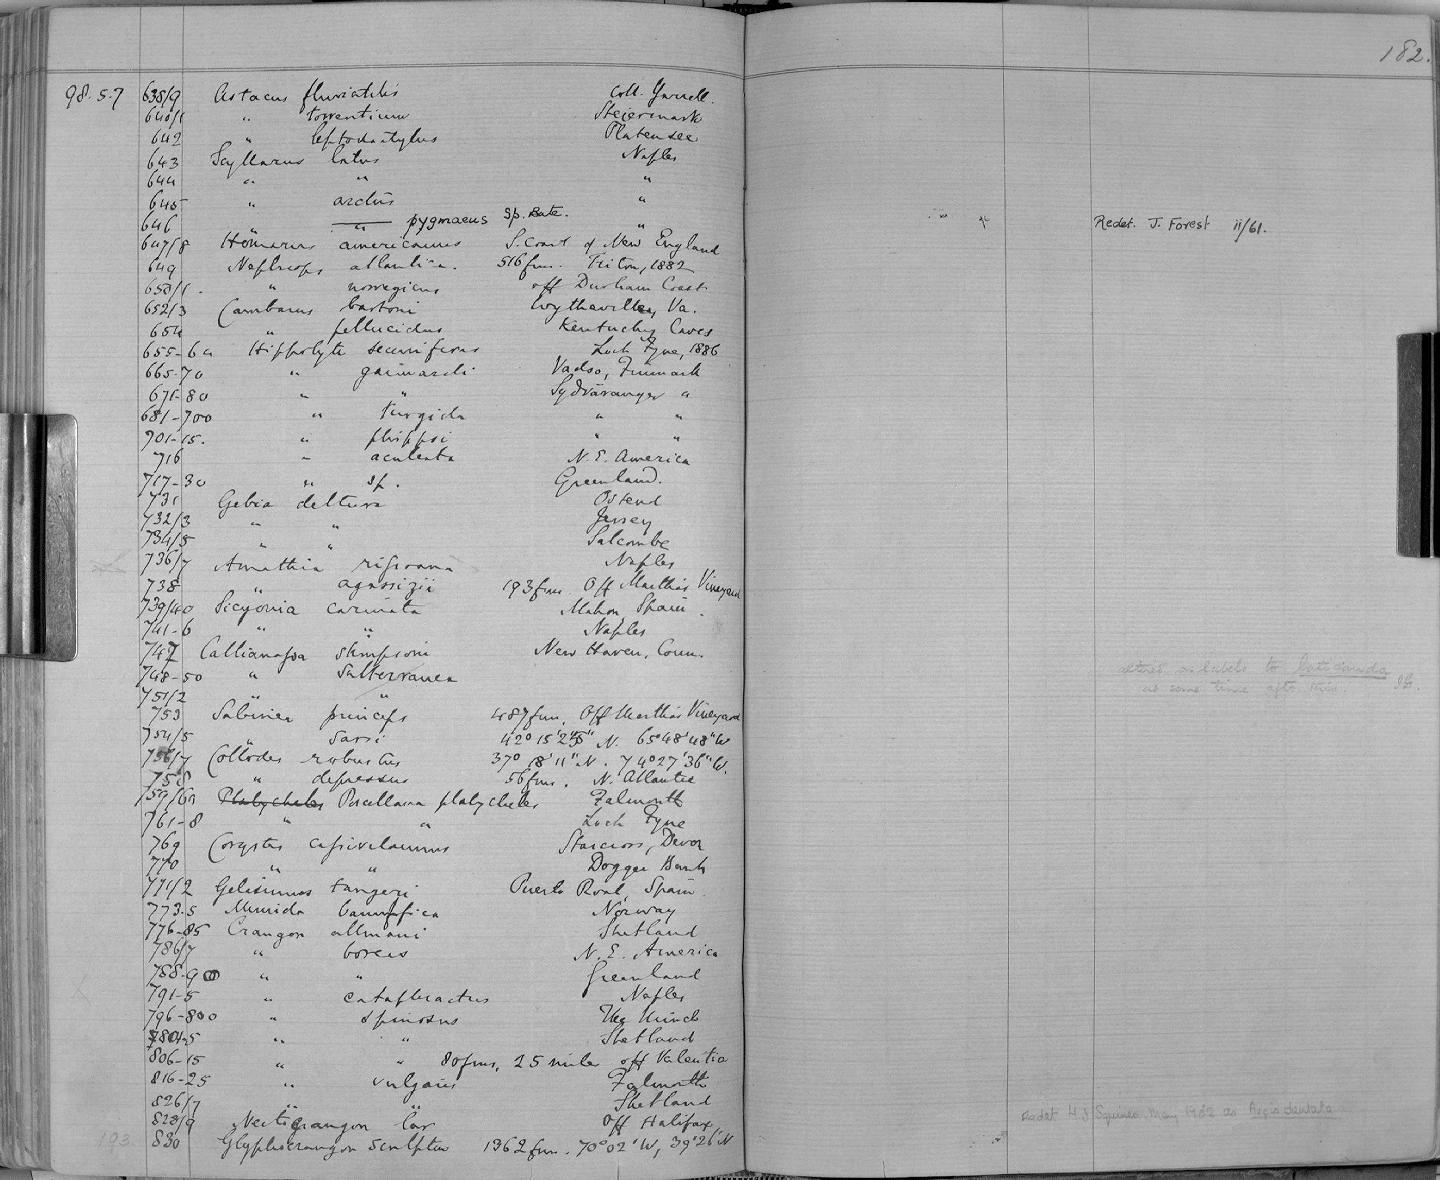 182.
98.5.7 638/9 Astacus fluviatilis Coll. Yarrell.
640/1 " torrentium Steiermark
642 " leptodactylus Platensee
643 Scyllarus latus Naples
644 " " "
645 " arctus "
646 " pygmaeus Sp. Bate. " Redet. J. Forest ii/61.
647/8 Homarus americanus S. Coast of New England
649 Nephrops atlantica. 516 fms. Triton, 1882
650/1. " norvegicus off Durham Coast
652/3 Cambarus bartoni Wytheville, Va.
654 " pellucidus Kentucky Caves
655-64 Hippolyte securifrons Loch Fyne, 1886
665-70 " gaimardi Vadso, Finmark
671-80 " " Sydvaranger "
681-700 " turgida " "
701-15. " phippsi " "
716 " aculeata N.E. America
717-30 " sp. Greenland.
731 Gebia deltura Ostend
732/3 " " Jersey
734/5 " " Salcombe
736/7 Amathia rissoana Naples
738 " agassizii 193 fms. Off Martha's Vineyard
739/40 Sicyonia carinata Mahon, Spain.
741-6 " " Naples
747 Callianassa stimpsoni New Haven, Conn.
748-50 " subterranea altered on labels to laticauda
751/2 " " at some time after this. I.G.
753 Sabinea princeps 487 fms, Off Martha's Vineyard
754/5 " sarsi 42° 15'25" N. 65°48'48"W
756/7 Collodes robustus 37° 18'11"N. 74°27'36"W.
758 " depressus 56 fms. N. Atlantic
759/60 Platycheles Porcellana platycheles Falmouth
761-8 " " Loch Fyne
769 Corystes cassivelaunus Starcross, Devon
770 " " Dogger Bank
771/2 Gelasimus tangeri Puerto Real, Spain.
773-5 Munida bamffica Norway
776-85 Crangon allmani Shetland
786/7 " boreas N.E. America
788-90 " " Greenland
791-5 " cataphractus Naples
796-800 " spinosus The Minch
801-5 " " Shetland
806-15 " " 80 fms, 25 miles off Valentia
816-25 " vulgaris Falmouth
826/7 " " Shetland
828/9 Nectocrangon lar Off Halifax, Redet H J Squires May 1962 as Argis dentata
830 Glyphocrangon sculptus 1362 fms. 70°02' W, 39°26' N
193